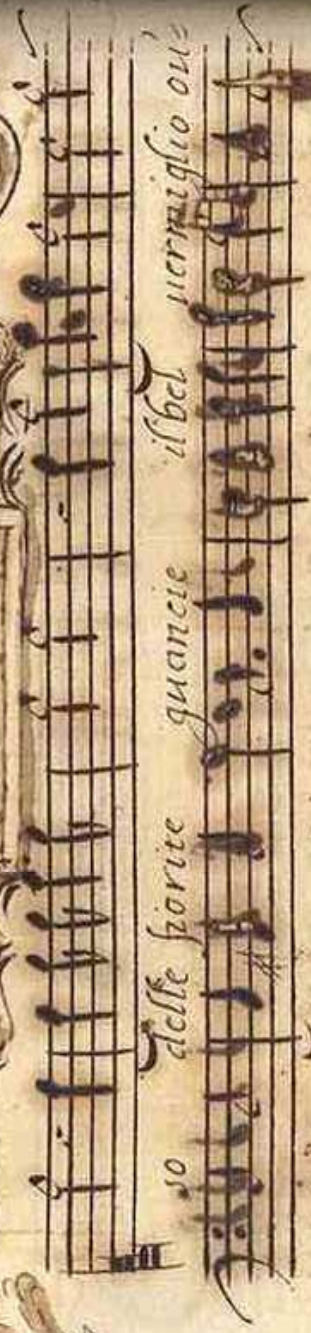 so delle fiorite guancie il bel vermiglio ou=